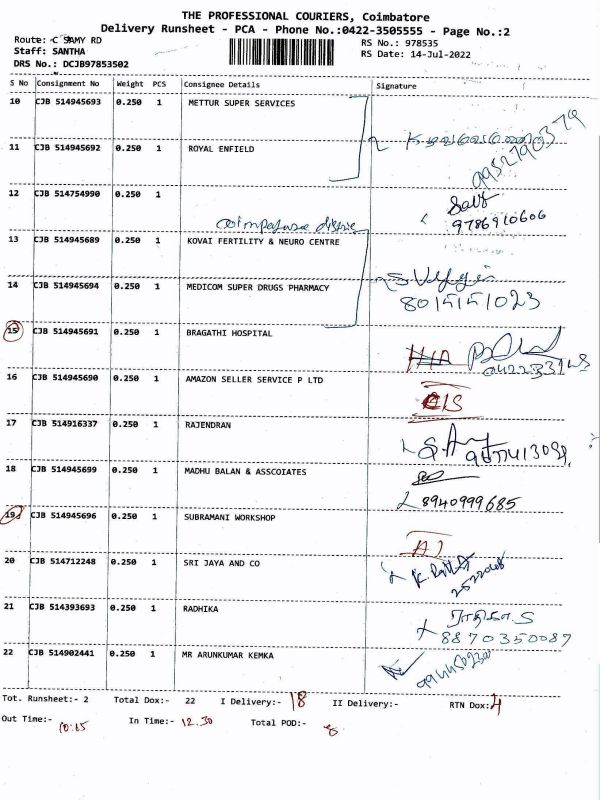 THE PROFESSIONAL COURIERS, Coimbatore
Delivery Runsheet - PCA - Phone No.:0422-3505555 - Page No.:2
Route: C SAMY RD
RS No.: 978535
Staff: SANTHA
RS Date: 14-Jul-2022
DRS No.: DCJB97853502
S No Consignment No Weight PCS Consignee Details Signature
10 CJB 514945693 0.250 1 METTUR SUPER SERVICES
11 CJB 514945692 0.250 1 ROYAL ENFIELD
9952790379
12 CJB 514754990 0.250 1
9786910606
13 CJB 514945689 0.250 1 KOVAI FERTILITY & NEURO CENTRE
14 CJB 514945694 0.250 1 MEDICOM SUPER DRUGS PHARMACY
8015151023
15 CJB 514945691 0.250 1 BRAGATHI HOSPITAL
16 CJB 514945690 0.250 1 AMAZON SELLER SERVICE P LTD
17 CJB 514916337 0.250 1 RAJENDRAN
18 CJB 514945699 0.250 1 MADHU BALAN & ASSCOIATES
8940999685
19 CJB 514945696 0.250 1 SUBRAMANI WORKSHOP
20 CJB 514712248 0.250 1 SRI JAYA AND CO
21 CJB 514393693 0.250 1 RADHIKA
8870350087
22 CJB 514902441 0.250 1 MR ARUNKUMAR KEMKA
Tot. Runsheet:- 2 Total Dox:- 22 I Delivery:- 18 II Delivery:- RTN Dox: 4
Out Time:- In Time:- 12.30 Total POD:-